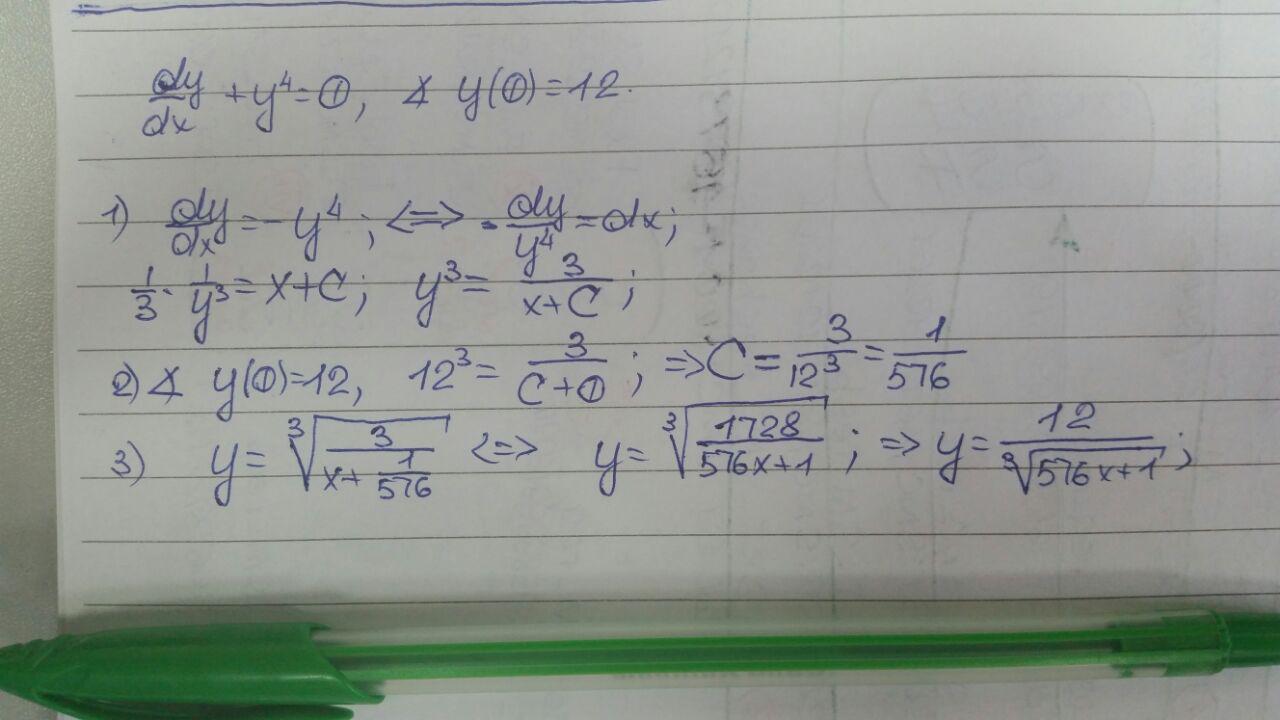 dy/dx + y⁴ = 0, ∡ y(0) = 12.
1) dy/dx = -y⁴; <=> -dy/y⁴ = dx;
1/3 · 1/y³ = x+C; y³ = 3/(x+C);
2) ∡ y(0)=12, 12³ = 3/(C+0); => C = 3/12³ = 1/576
3) y = ∛(3/(x+1/576)) <=> y = ∛(1728/(576x+1)); => y = 12/∛(576x+1);